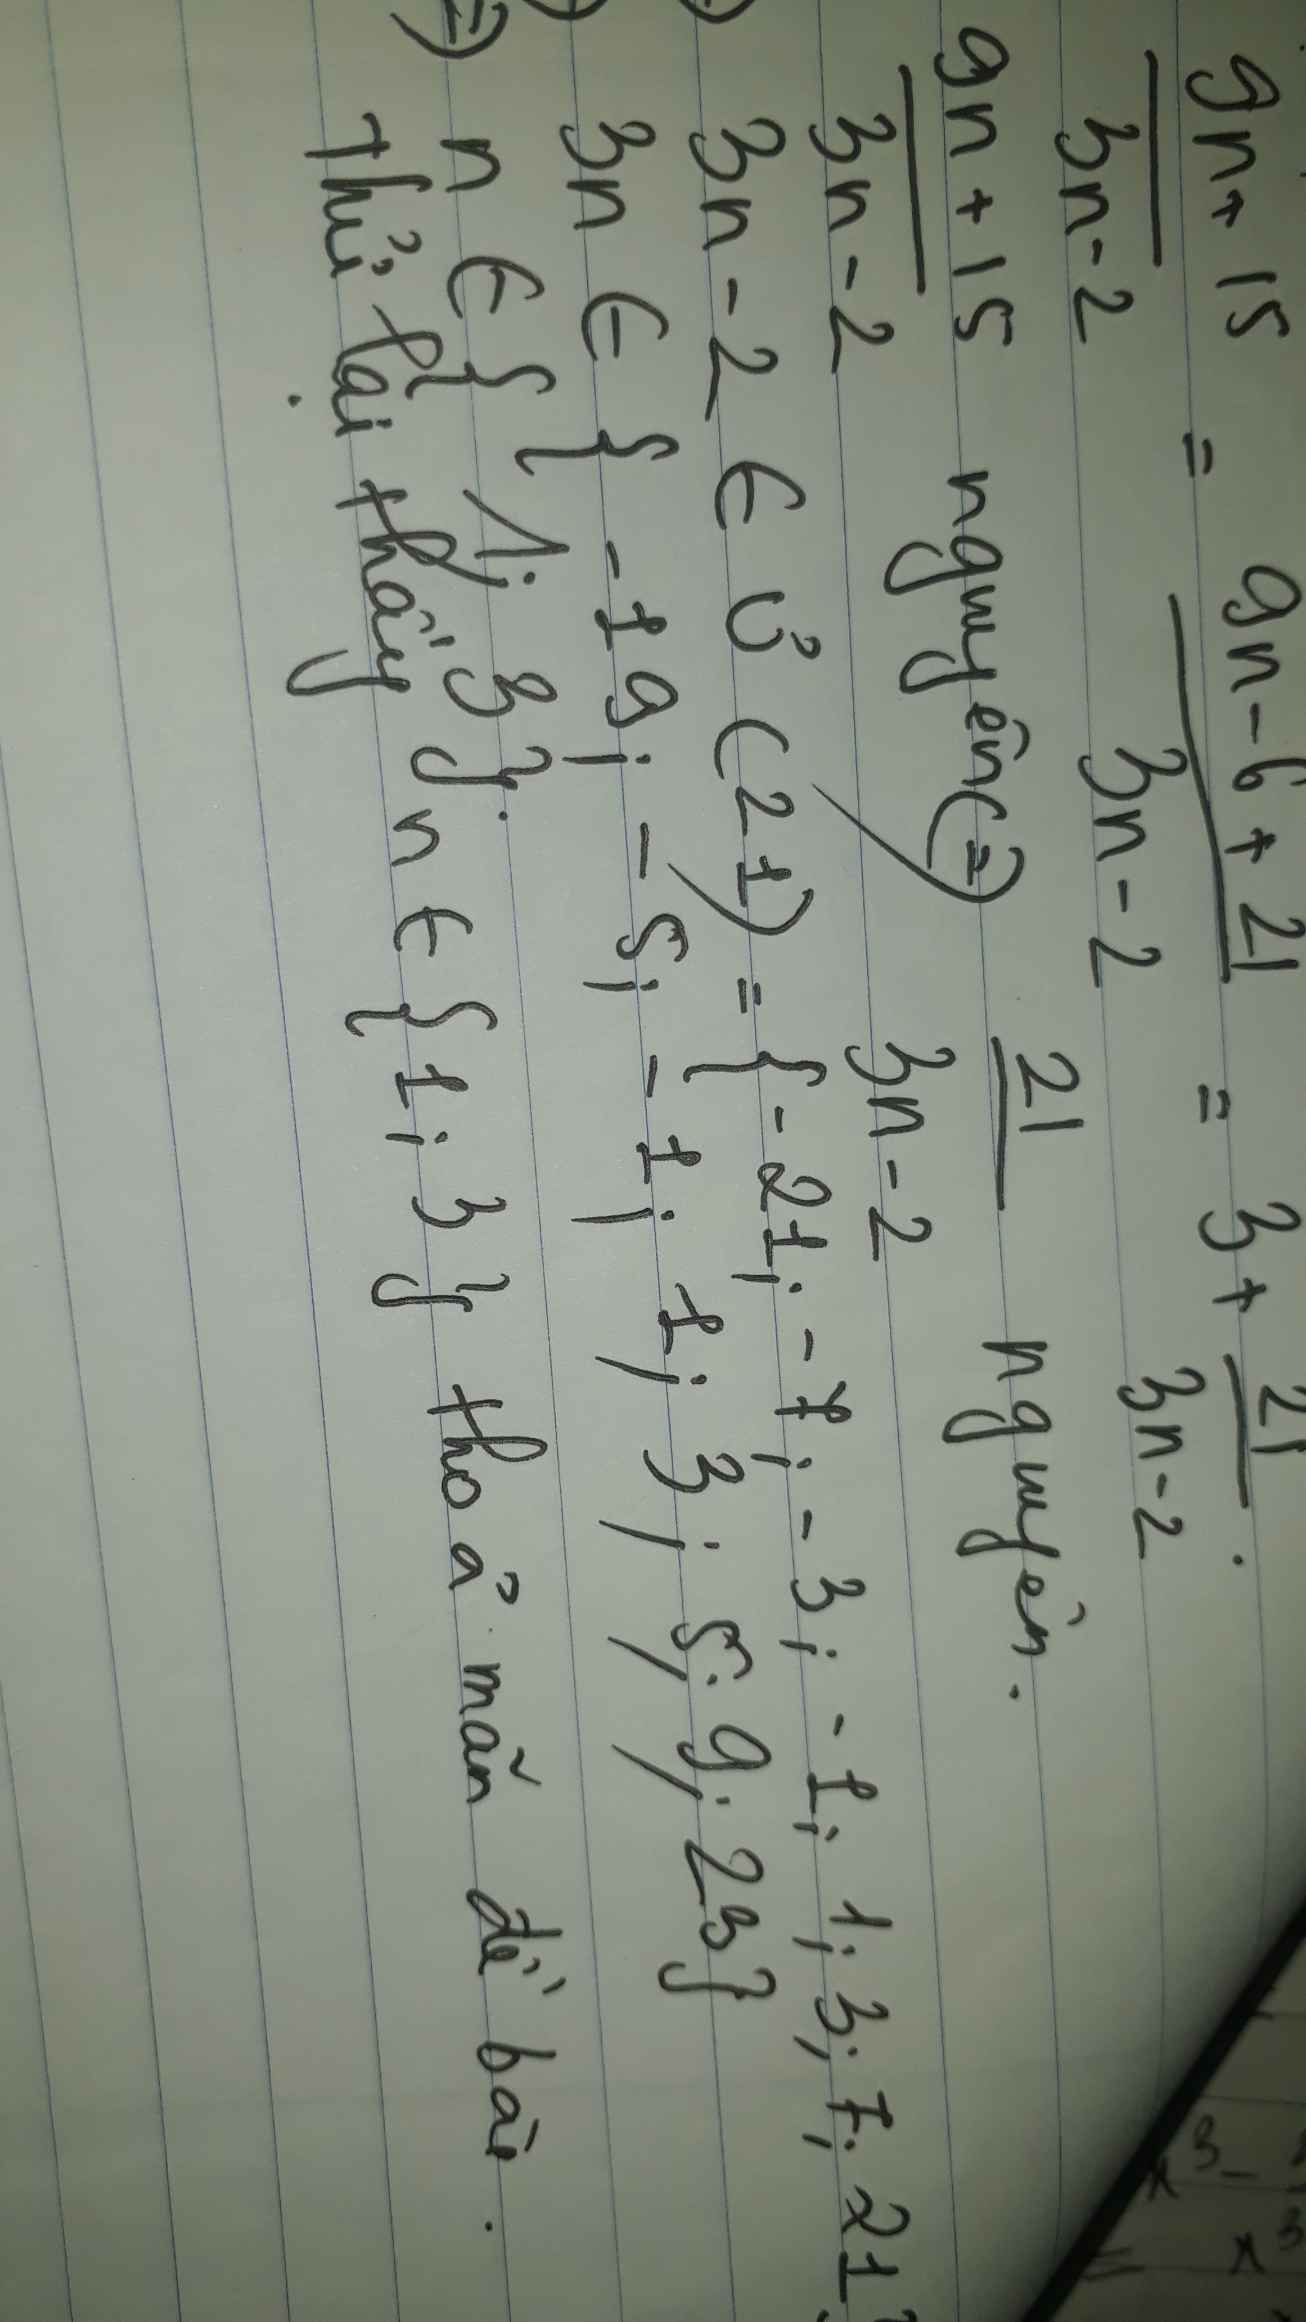 9n+15/3n-2 = 9n-6+21/3n-2 = 3+ 21/3n-2.
9n+15/3n-2 nguyên (=) 21/3n-2 nguyên.
) 3n-2 ∈ Ư (21) = {-21; -7; -3; -1; 1; 3; 7; 21}
) 3n ∈ {-19; -5; -1; 1; 3; 5; 9; 23}
=) n ∈ {1; 3}.
Thử lại thấy n ∈ {1; 3} thoả mãn đề bài.
x³-
= x³